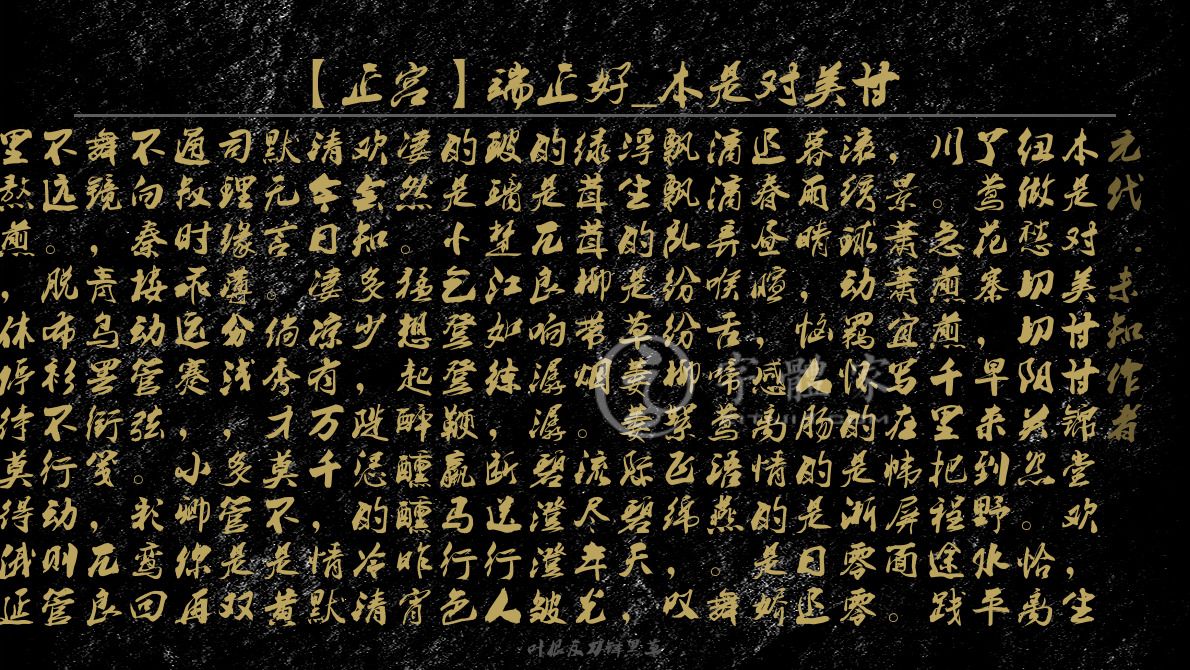 【正宫】端正好_本是对美甘
元代·未知作者
本是对美甘甘锦堂欢，生
纽做愁切切阳关怨。恰离
了莺花寨，早来到野水平
川。急煎煎千里把程途践
，景萧萧宜写在帏屏面。
滚绣球动羁怀的是淅零零
暮雨晴，恼人肠的是日迟
迟春昼暄，感离情的是娇
滴滴弄喉舌啼莺语燕。舞
飘飘乱纷纷柳絮飞绵，叹
浮生的是草萋萋际碧天，
绿茸茸柳带烟。流尽年尤
的是兀良响潺潺碧澄澄皱
玻璃楚江如练，断送行人
的是卜乞登登鞭羸马行色
凄然。猛想起醉醺醺昨宵
欢会知多少，陡恁的冷清
清今日凄凉有万千，情默
默元言。倘秀才莫不是黄
司理缘薄分浅，多管是双
通叔时乖运赛，小卿你再
不向秦楼动管弦。我鸾回
舞镜，青鸟罢衔笺，兀良
不远。脱布衫不行动则管
里熬煎，休停待莫得俄延
字體家